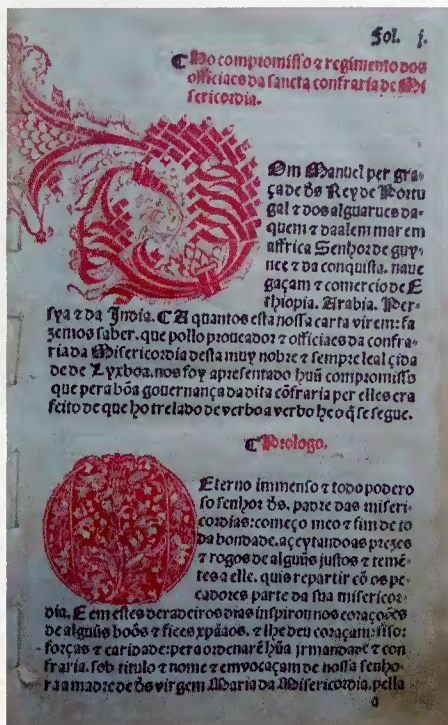 Fol. j.
¶ Ho compromisso ⁊ regimento dos
officiaes da sancta confraria de Mi
sericordia.
DOm Manuel per gra-
ça de d̄s Rey de Portu
gal ⁊ dos alguarues da-
quem ⁊ daalem mar em
affrica Senhor de guy-
nee ⁊ da conquista. naue
gaçam ⁊ comercio de E
thiopia. Arabia. Per-
sya ⁊ da India. ¶ A quantos esta nossa carta virem: fa
zemos saber. que pollo proueador ⁊ officiaes da confra-
ria da Misericordia desta muy nobre ⁊ sempre leal çida
de de Lyxboa. nos foy apresentado huũ compromisso
que pera bõa gouernança da dita cõfraria per elles era
feito de que ho trelado de verbo a verbo he o q̃ se segue.
¶ Prologo.
O Eterno immenso ⁊ todo podero
so senhor d̄s. padre das miseri-
cordias: começo meo ⁊ fim de to
da bondade. açeytando as prezes
⁊ rogos de alguũs justos ⁊ temẽ-
tes a elle. quis repartir cõ os pe-
cadores parte da sua misericor-
dia. E em estes deradeiros dias inspirou nos corações
de alguũs boõs ⁊ fiees xp̃aãos. ⁊ lhe deu coraçam: siso:
forças ⁊ caridade: pera ordenarẽ hũa jrmandade ⁊ con
fraria. sob titulo ⁊ nome ⁊ emvocaçam de nossa senho
ra a madre de d̄s virgem Maria da Misericordia. pella
a